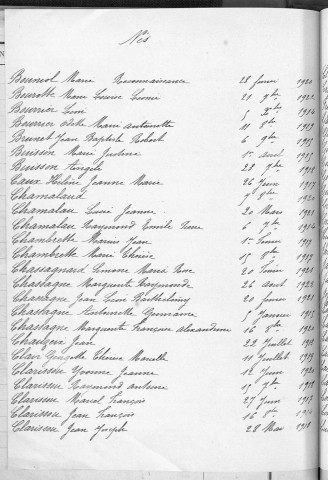 Nés
Bouniol Marie Reconnaissance 28 février 1920
Bourotte Marie Louise Léonie 21 9bre 1922
Bourrier Léon 5 Xbre 1914
Bourrier Odette Marie Antoinette 11 8bre 1919
Brunet Jean Baptiste Robert 6 9bre 1915
Buisson Marie Justine 1er Août 1917
Buisson Angèle 28 9bre 1918
Caux Hélène Jeanne Marie 26 Juin 1917
Chamaland 7 8bre 1920
Chamalan Jeanne 20 Mars 1921
Chamalan Raymond Emile 6 9bre 1914
Chambrette Marius Jean 1er Février 1917
Chambrette Marie Thérèse 15 8bre 1917
Chassagnard Simone Marie 20 Février 1921
Chassagne Marguerite Raymonde 26 Août 1922
Chassagne Jean Barthélemy 20 février 1921
Chastagne Antoinette Germaine 5 Janvier 1915
Chastagne Marguerite Françoise Alexandrine 16 8bre 1920
Chauzen Jean 22 Juillet 1913
Clair Georgette Marcelle 11 Juillet 1919
Clarisse Yvonne Jeanne 12 Juin 1920
Clarisse Raymond Antoine 15 1918
Clarisse Marcel François 27 Juin 1917
Clarisse Jean François 16 8bre 1914
Clarisse Jean Joseph 28 Mai 1918